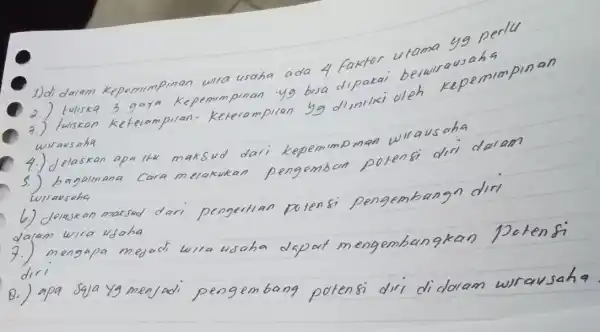 1) di dalam kepemimpinan wira usaha ada 4 faktor utama yg perlu
2.) tuliska 3 gaya kepemimpinan yg bisa dipakai berwirausaha
3.) tuliskan keterampilan-keterampilan yg dimiliki oleh kepemimpinan
wirausaha
4.) Jelaskan apa itu maksud dari kepemimpinan wirausaha
5.) bagaimana cara melakukan pengemban potensi diri dalam
wirausaha
6) Jelaskan maksud dari pengertian potensi pengembangn diri
dalam wira usaha
7.) mengapa mejadi wira usaha dapat mengembangkan potensi
diri
8.) apa saja yg menjadi pengembang potensi diri didalam wirausaha.